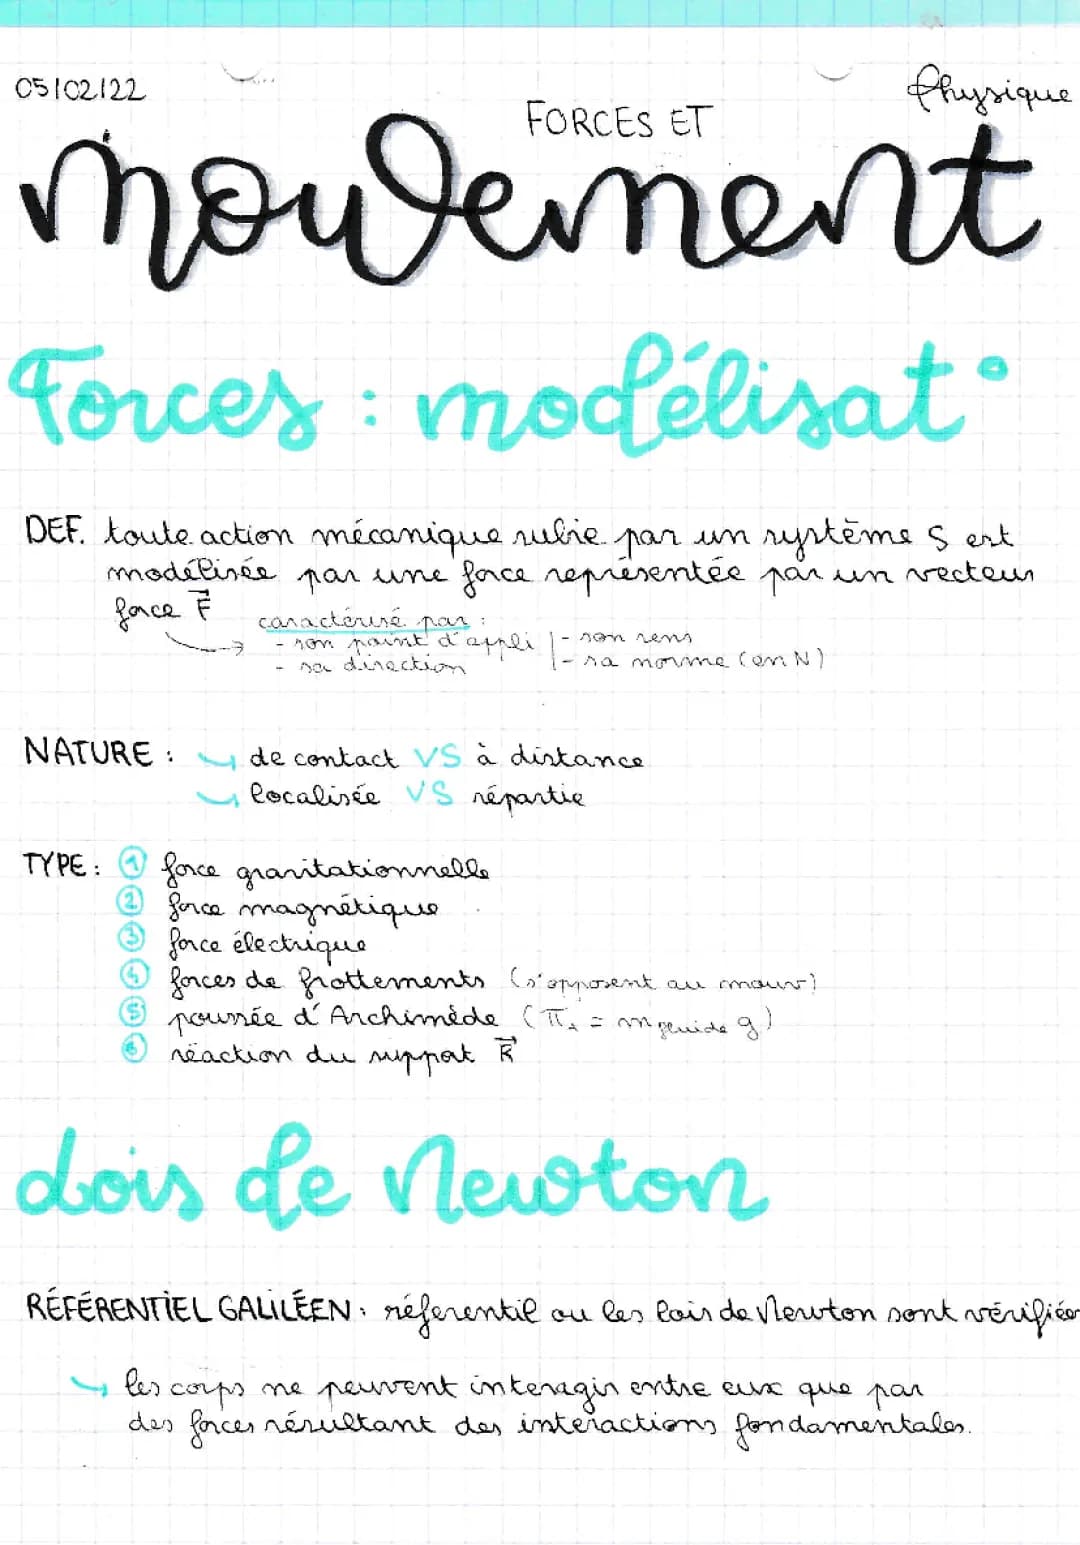 05/02/22
Physique
FORCES ET
mouvement
Forces : modélisat°
DEF. toute action mécanique subie par un système S est
modélisée par une force représentée par un vecteur
force F⃗
caractérisé par :
- son point d'appli | - son sens
- sa direction | - sa norme (en N)
NATURE : ↪ de contact VS à distance
↪ localisée VS répartie
TYPE : ① force gravitationnelle
② force magnétique
③ force électrique
④ forces de frottements (s'opposent au mouv)
⑤ poussée d'Archimède (π_A = m fluide g)
⑥ réaction du support R⃗
Lois de Newton
RÉFÉRENTIEL GALILÉEN : référentiel ou les lois de Newton sont vérifiées
↪ les corps ne peuvent interagir entre eux que par
des forces résultant des interactions fondamentales.